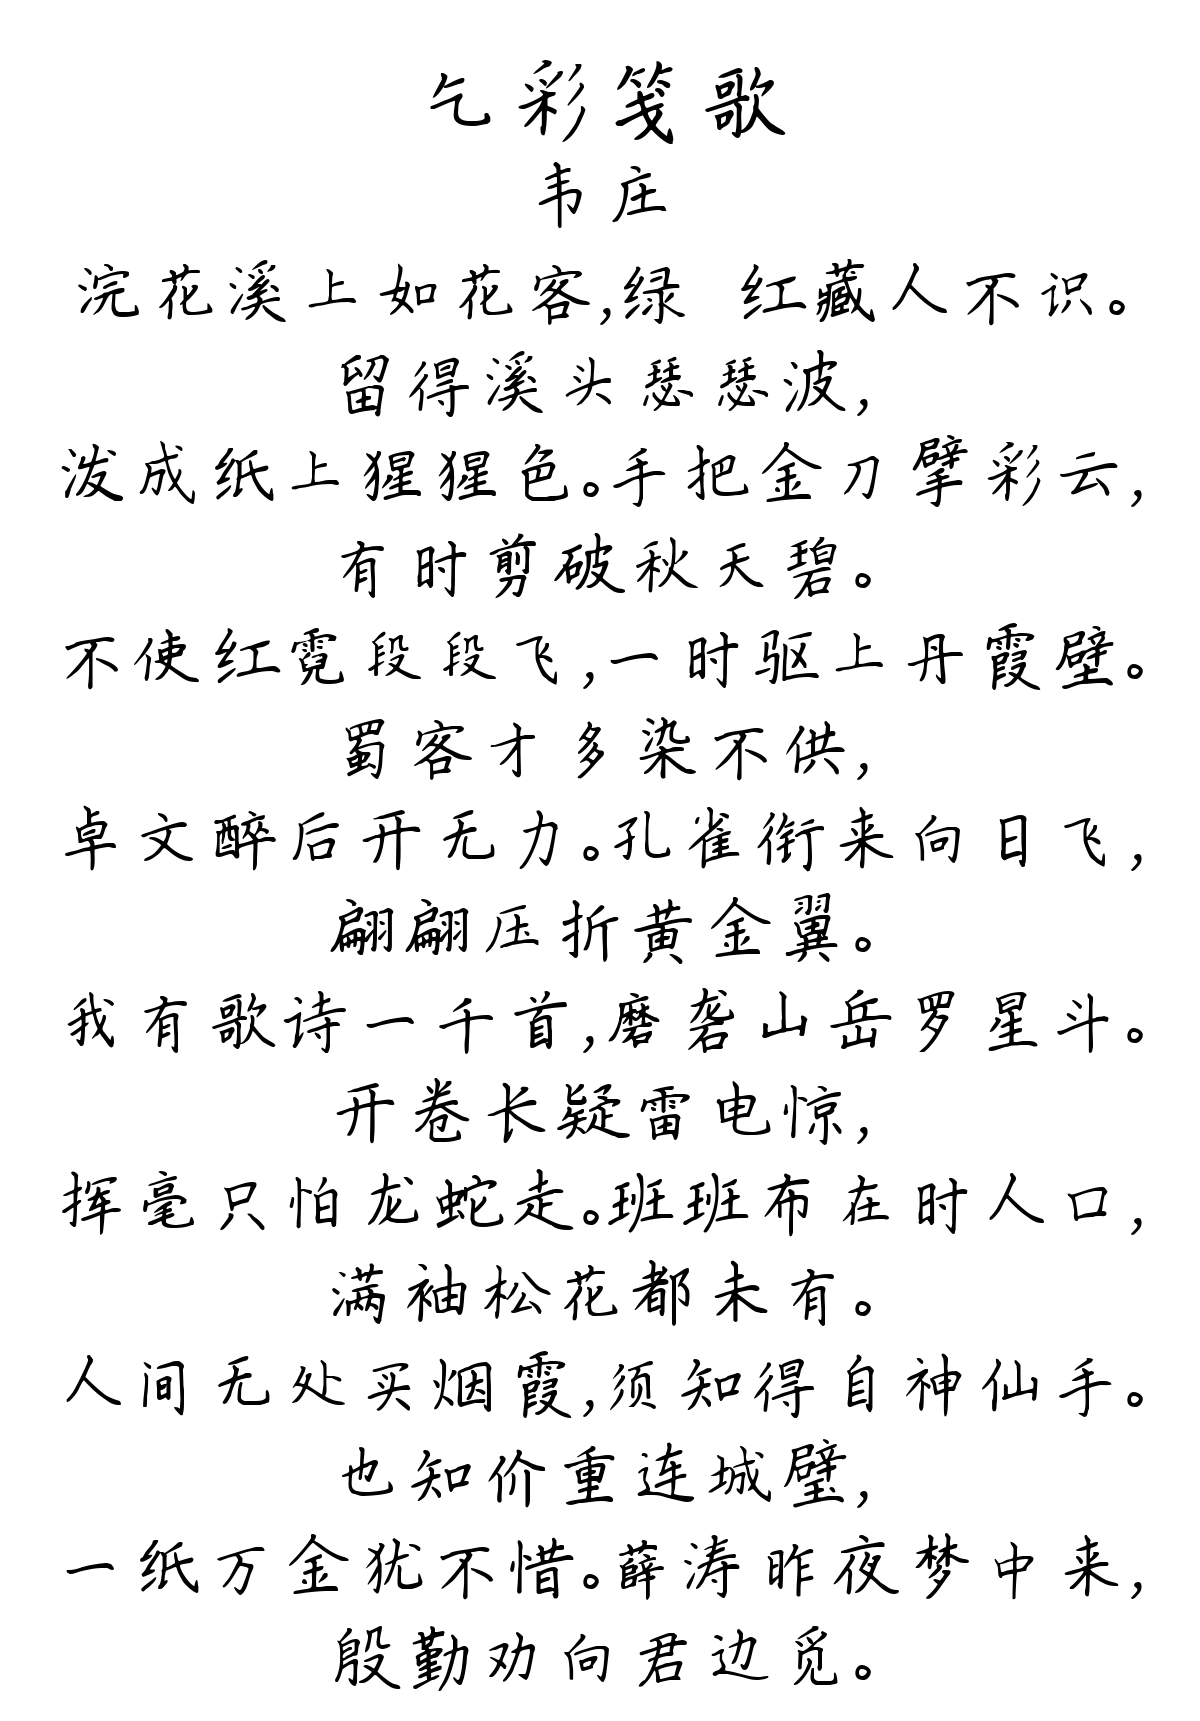 乞彩笺歌
韦庄
浣花溪上如花客,绿 红藏人不识。
留得溪头瑟瑟波,
泼成纸上猩猩色。手把金刀擘彩云,
有时剪破秋天碧。
不使红霓段段飞,一时驱上丹霞壁。
蜀客才多染不供,
卓文醉后开无力。孔雀衔来向日飞,
翩翩压折黄金翼。
我有歌诗一千首,磨砻山岳罗星斗。
开卷长疑雷电惊,
挥毫只怕龙蛇走。班班布在时人口,
满袖松花都未有。
人间无处买烟霞,须知得自神仙手。
也知价重连城璧,
一纸万金犹不惜。薛涛昨夜梦中来,
殷勤劝向君边觅。